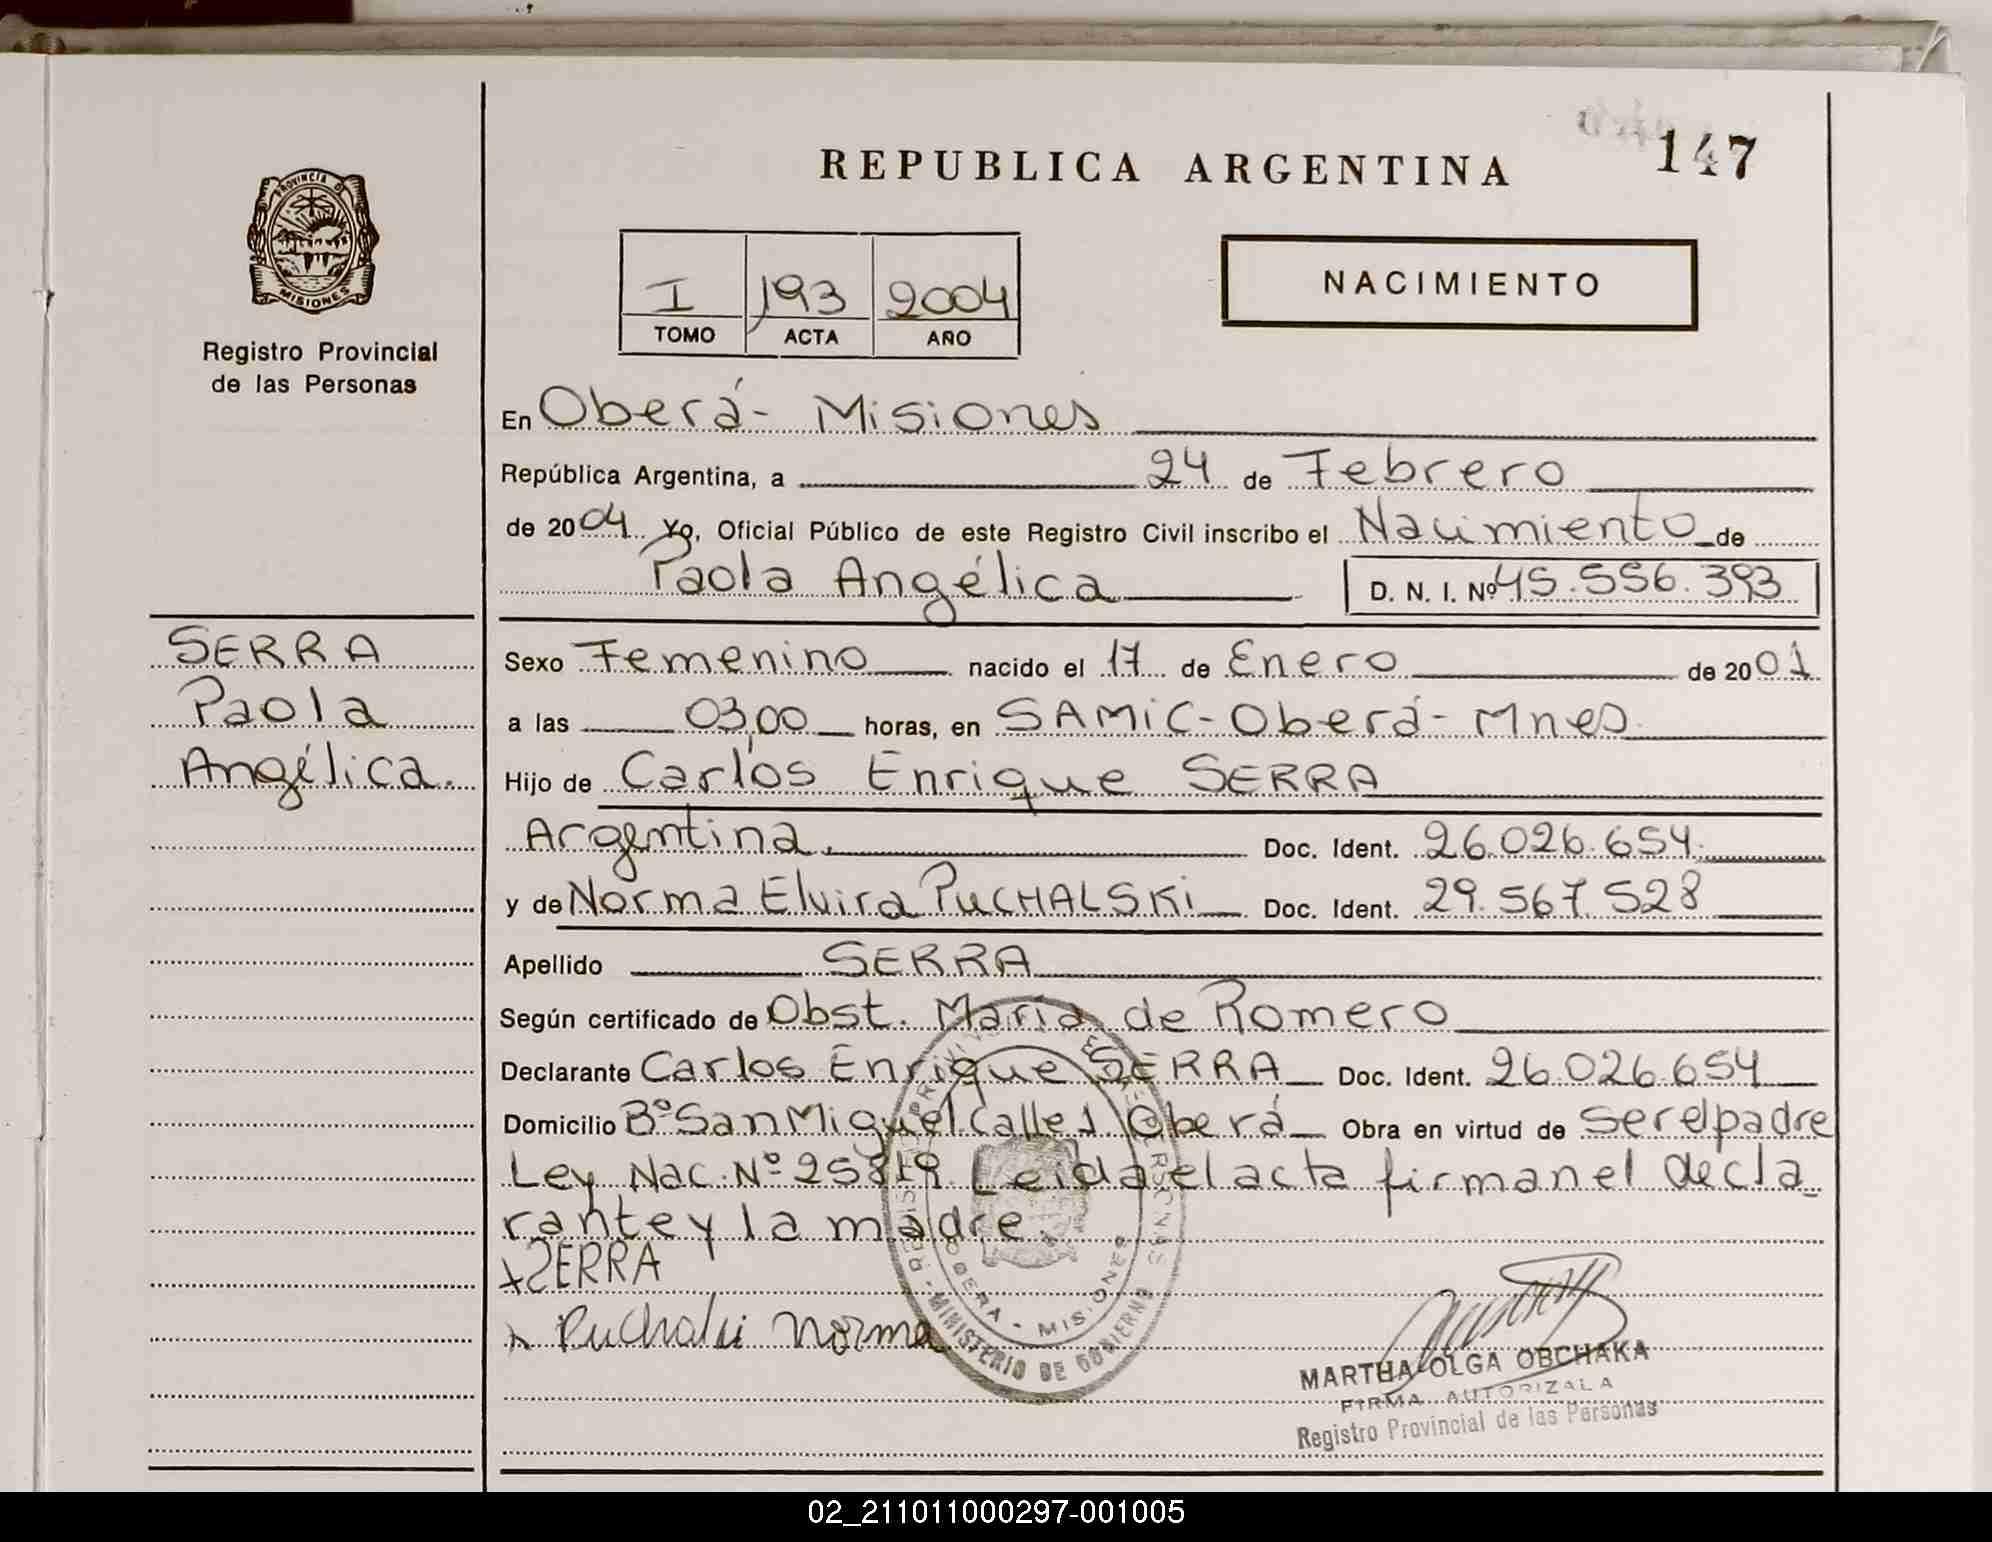 REPUBLICA ARGENTINA
147
PROVINCIA DE
MISIONES
Registro Provincial
de las Personas
I 193 2004
TOMO ACTA AÑO
NACIMIENTO
En Oberá - Misiones
República Argentina, a 24 de Febrero
de 2004 Yo, Oficial Público de este Registro Civil inscribo el Nacimiento de
Paola Angélica D. N. I. Nº 45.556.393
SERRA
Paola
Angélica.
Sexo Femenino nacido el 17 de Enero de 2001
a las 03,00 horas, en SAMIC - Oberá - Mnes
Hijo de Carlos Enrique SERRA
Argentina. Doc. Ident. 26.026.654.
y de Norma Elvira PUCHALSKI Doc. Ident. 29.567.528
Apellido SERRA
Según certificado de Obst. María de Romero
Declarante Carlos Enrique SERRA Doc. Ident. 26.026.654
Domicilio Bº San Miguel Calle 1 Oberá Obra en virtud de ser el padre
Ley Nac. Nº 25819. Leida el acta firman el decla
rante y la madre.
x SERRA
x Puchalski Norma
OBERA - MISIONES
MINISTERIO DE GOBIERNO
MARTHA OLGA OBCHAKA
FIRMA AUTORIZADA
Registro Provincial de las Personas
02_211011000297-001005